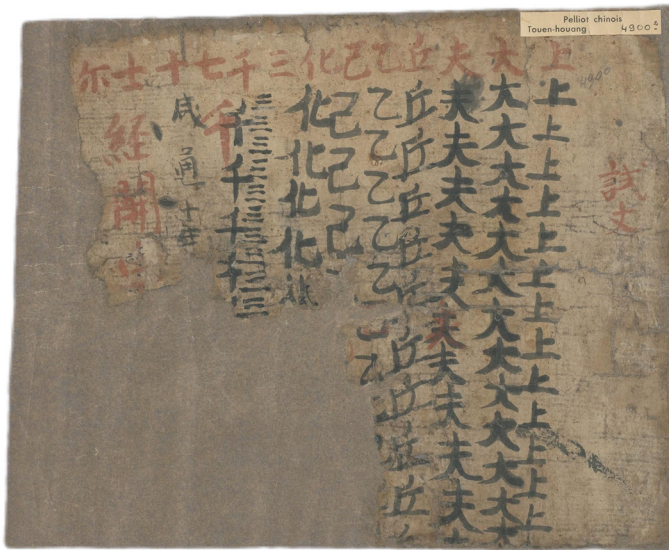 Pelliot chinois
Touen-houang 4900 2
4900
試文
上上上上上上上上上上上上上上
大大大大大大大大大大大大大大
夫夫夫夫夫夫夫夫夫夫夫夫
丘丘丘丘丘丘丘丘丘丘丘
乙乙乙乙乙乙乙乙
己己己己
化化化化化
三三三三三三三三三三
千千千千千
七千
十咸通十年
士經開
尔